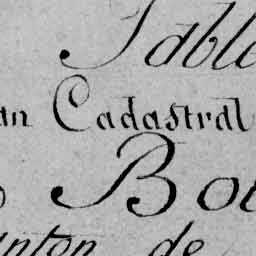 Table
an Cadastral
Bo
anton de